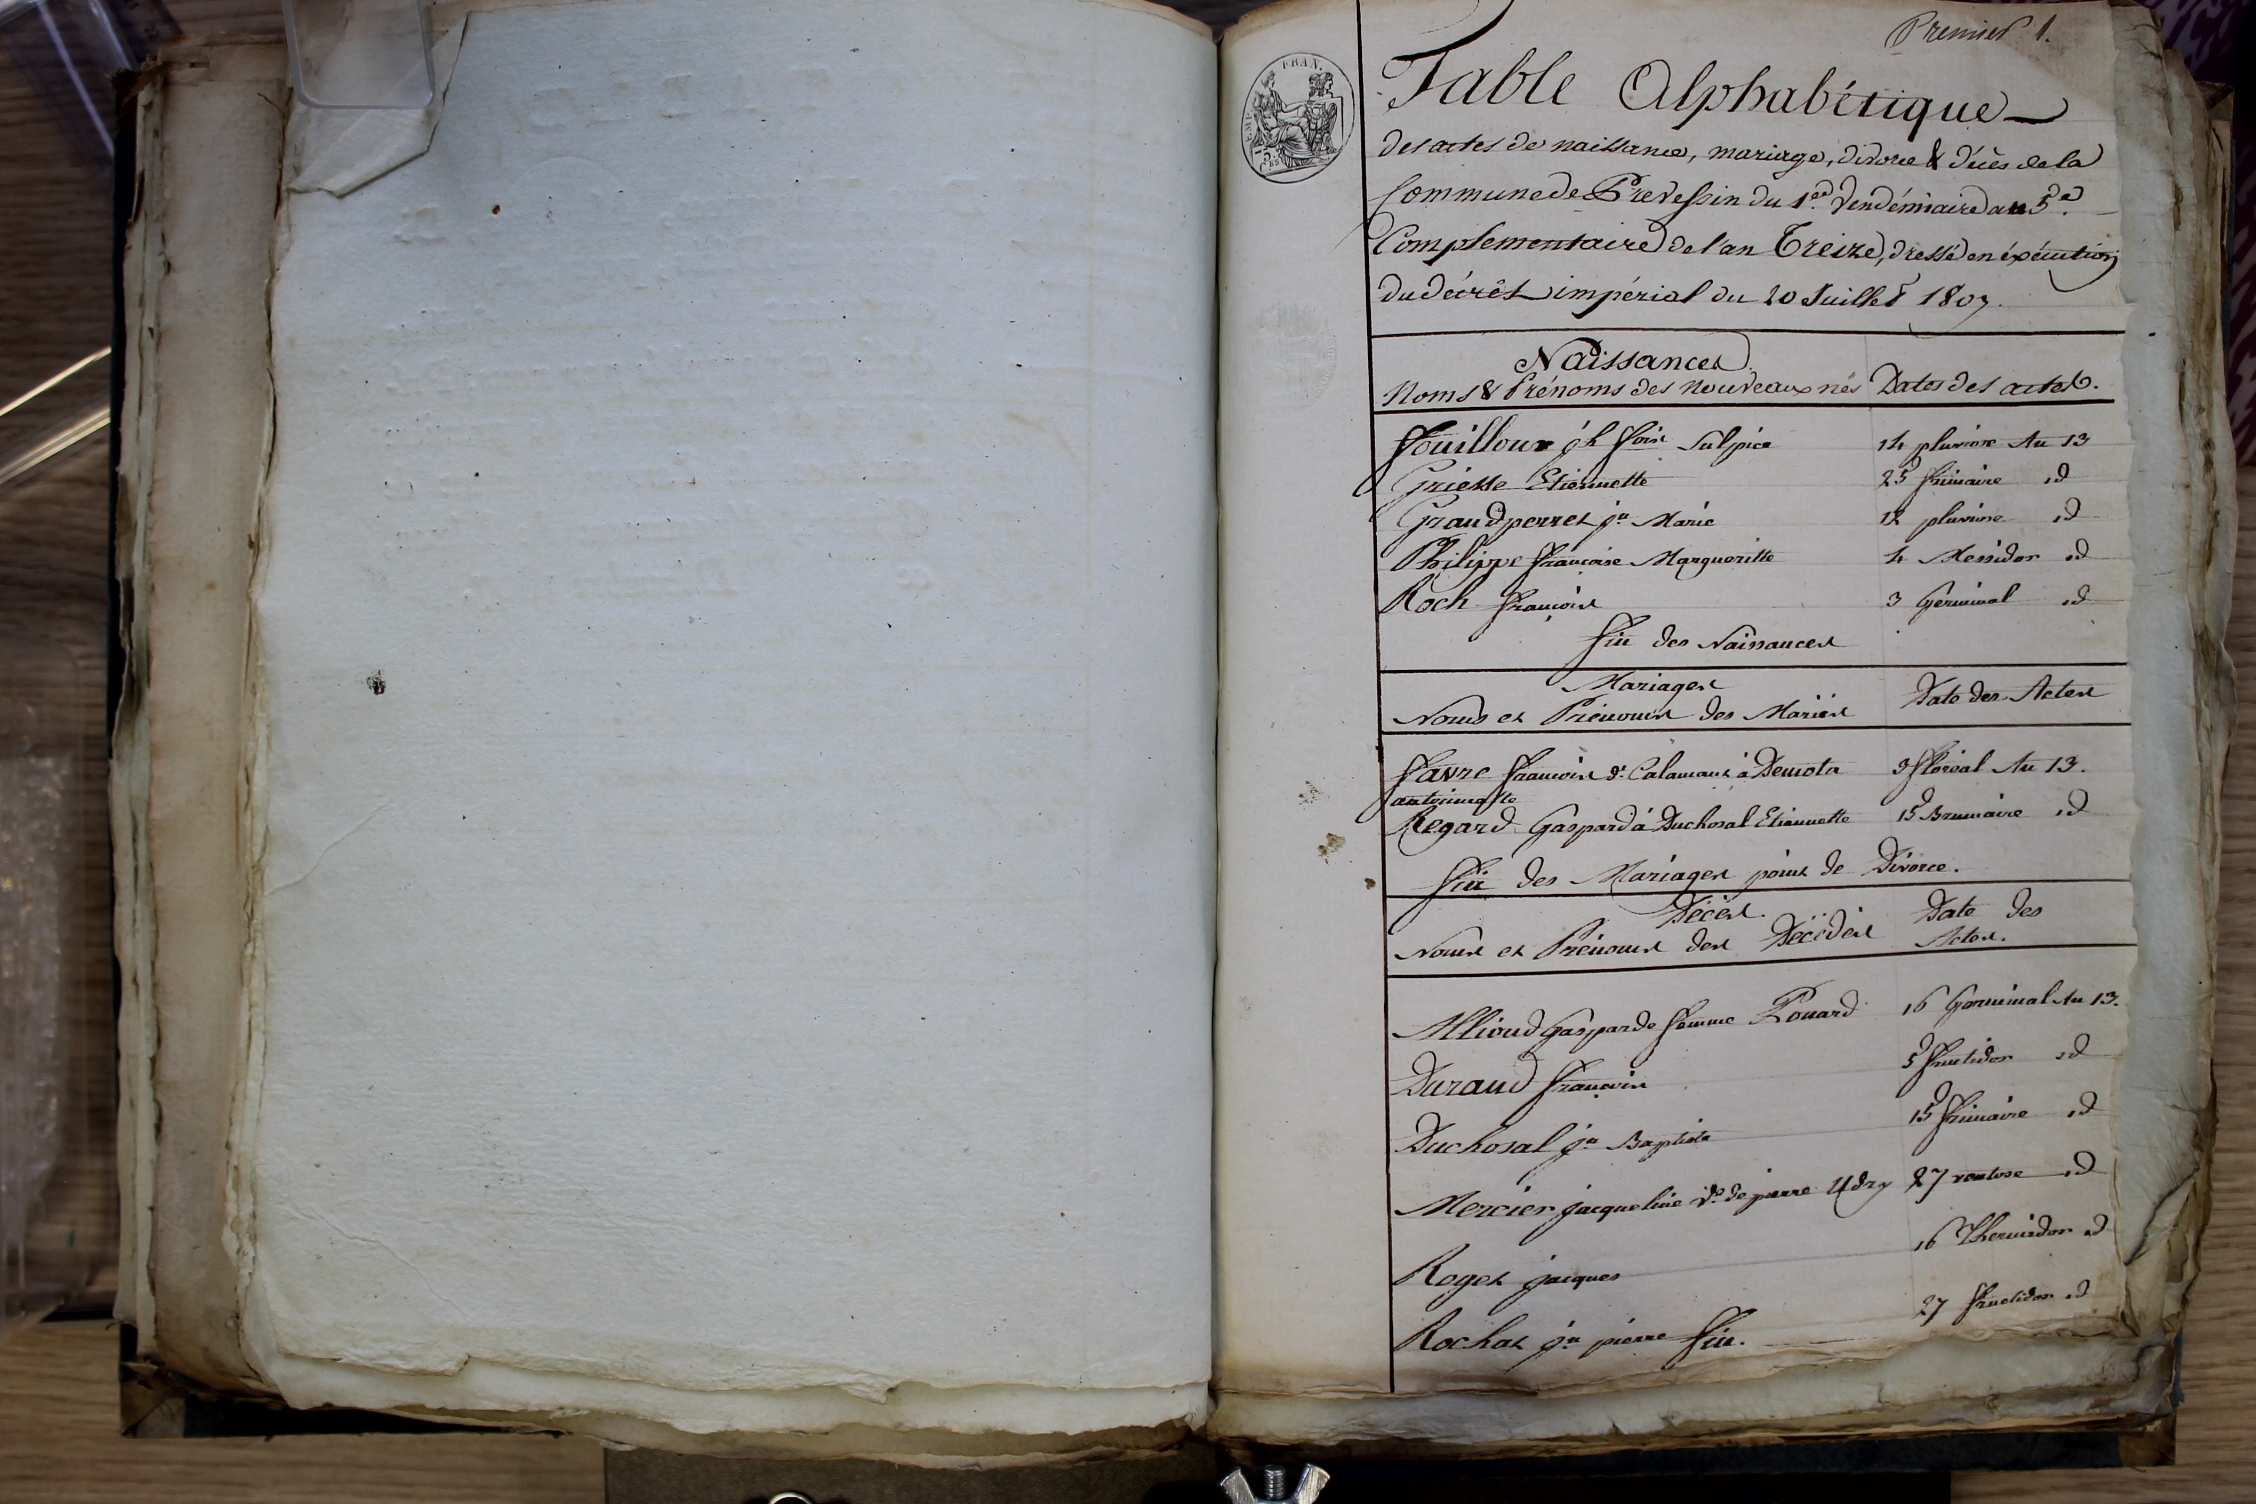 Premier 1.
Table Alphabétique
des actes de naissance, mariage, divorce & décès de la
Commune de Prevessin du 1er Vendémiaire au 5e
Complementaire de l'an Treize, dressé en éxécution
du décrêt impérial du 20 Juillet 1807.
FRAN.
Naissances
Noms & Prénoms des nouveaux nés Dates des actes.
Fouilloux jh fois Sulpice 14 pluviose An 13
Griesse Etiennette 25 frimaire id
Grandperret jn Marie 12 pluviose id
Philippe françoise Margueritte 4 Messidor id
Roch françois 3 Germinal id
fin des Naissances
Mariages
Noms et Prénoms des Mariés Date des Actes
favre françois dt Calamant à Demota 9 floréal An 13.
antoinette
Regard Gaspard à Duchosal Etiennette 15 Brumaire id
fin des Mariages point de Divorce.
Décès.
Noms et Prénoms des Décédés Date des
Actes.
Allioud Gasparde femme Ponard 16 Germinal An 13.
Durand françois 5 fructidor id
Duchosal jn Baptiste 15 frimaire id
Mercier jacqueline ve de pierre Udry 27 ventose id
Roget jacques 16 Thermidor id
Rochat jn pierre fin. 27 fructidor id